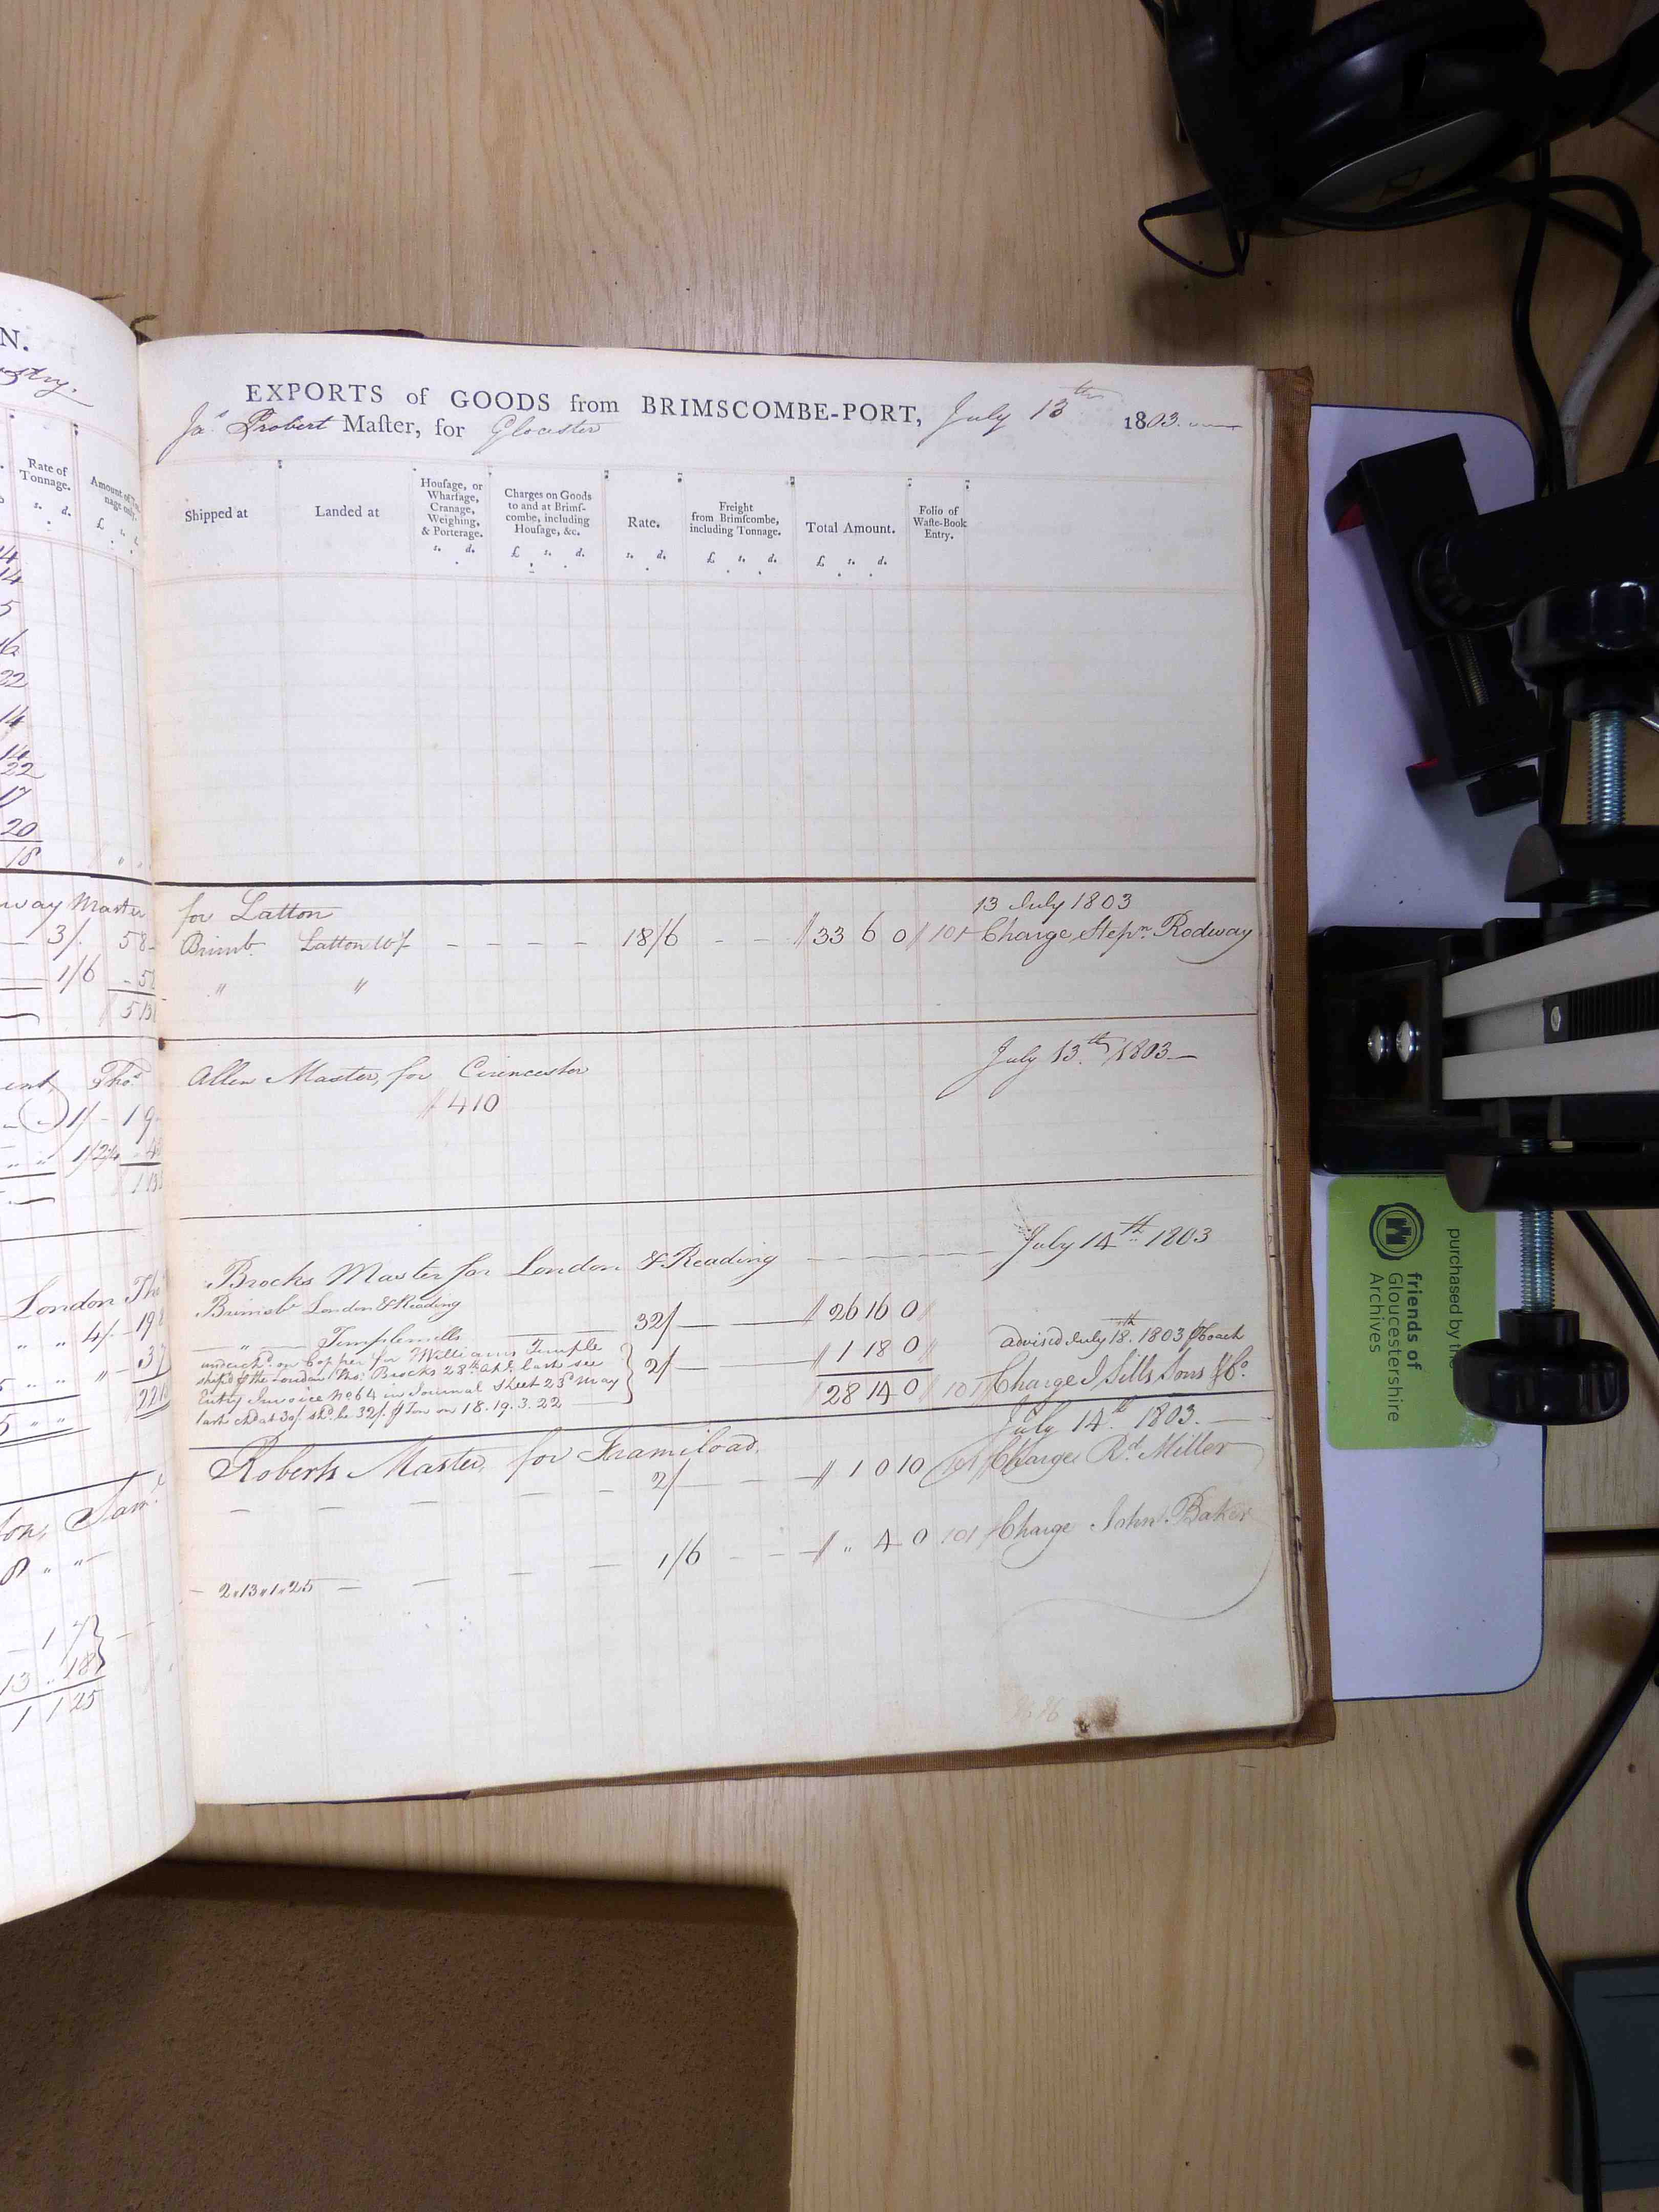 N.
Rate of
Tonnage.
s. d.
Amount of Ton-
nage only.
£ s. d.
14
14
5
16
22
14
14
22
17
20
18
way Master
3/. 58
1/6 - 5
513
ent, Thos.
1/- 19
1/2¼
London Tho
" " 4/- 19
17
13 .. 18
1 1 25
EXPORTS of GOODS from BRIMSCOMBE-PORT, July 13th 1803.
Jas. Probert Master, for Glocester
Shipped at
Landed at
Housage, or
Wharfage,
Cranage,
Weighing,
& Porterage.
s. d.
Charges on Goods
to and at Brims-
combe, including
Housage, &c.
£ s. d.
Rate.
s. d.
Freight
from Brimscombe,
including Tonnage.
£ s. d.
Total Amount.
£ s. d.
Folio of
Waste-Book
Entry.
for Latton 13 July 1803
Brimb. Latton Wf - - - - 18/6 - - 33 6 0 101 Charge Stepn. Rodway
" "
Allen Master, for Cirencester July 13th 1803
410
Brocks Master for London & Reading July 14th 1803
Brimsbr London & Reading 32/ 26 16 0
" Templemills 2/ 1 18 0 advised July 18th 1803 Hoach
underchd. on Copper for Williams Temple
shipd ⅌ the London Thos. Brocks 28th Apl. last see
Entry Invoice No 64 in Journal Sheet 23d May
last chd at 30/ shd. be 32/ ⅌ Ton on 18.19.3.22
28 14 0 101 Charge J Sills Sons & Co.
July 14th 1803.
Roberts Master, for Framiload.
2/ 1 0 10 101 Charge Rd. Miller
1/6 " 4 0 101 Charge John Baker
2"13"1"25
purchased by the
friends of
Gloucestershire
Archives